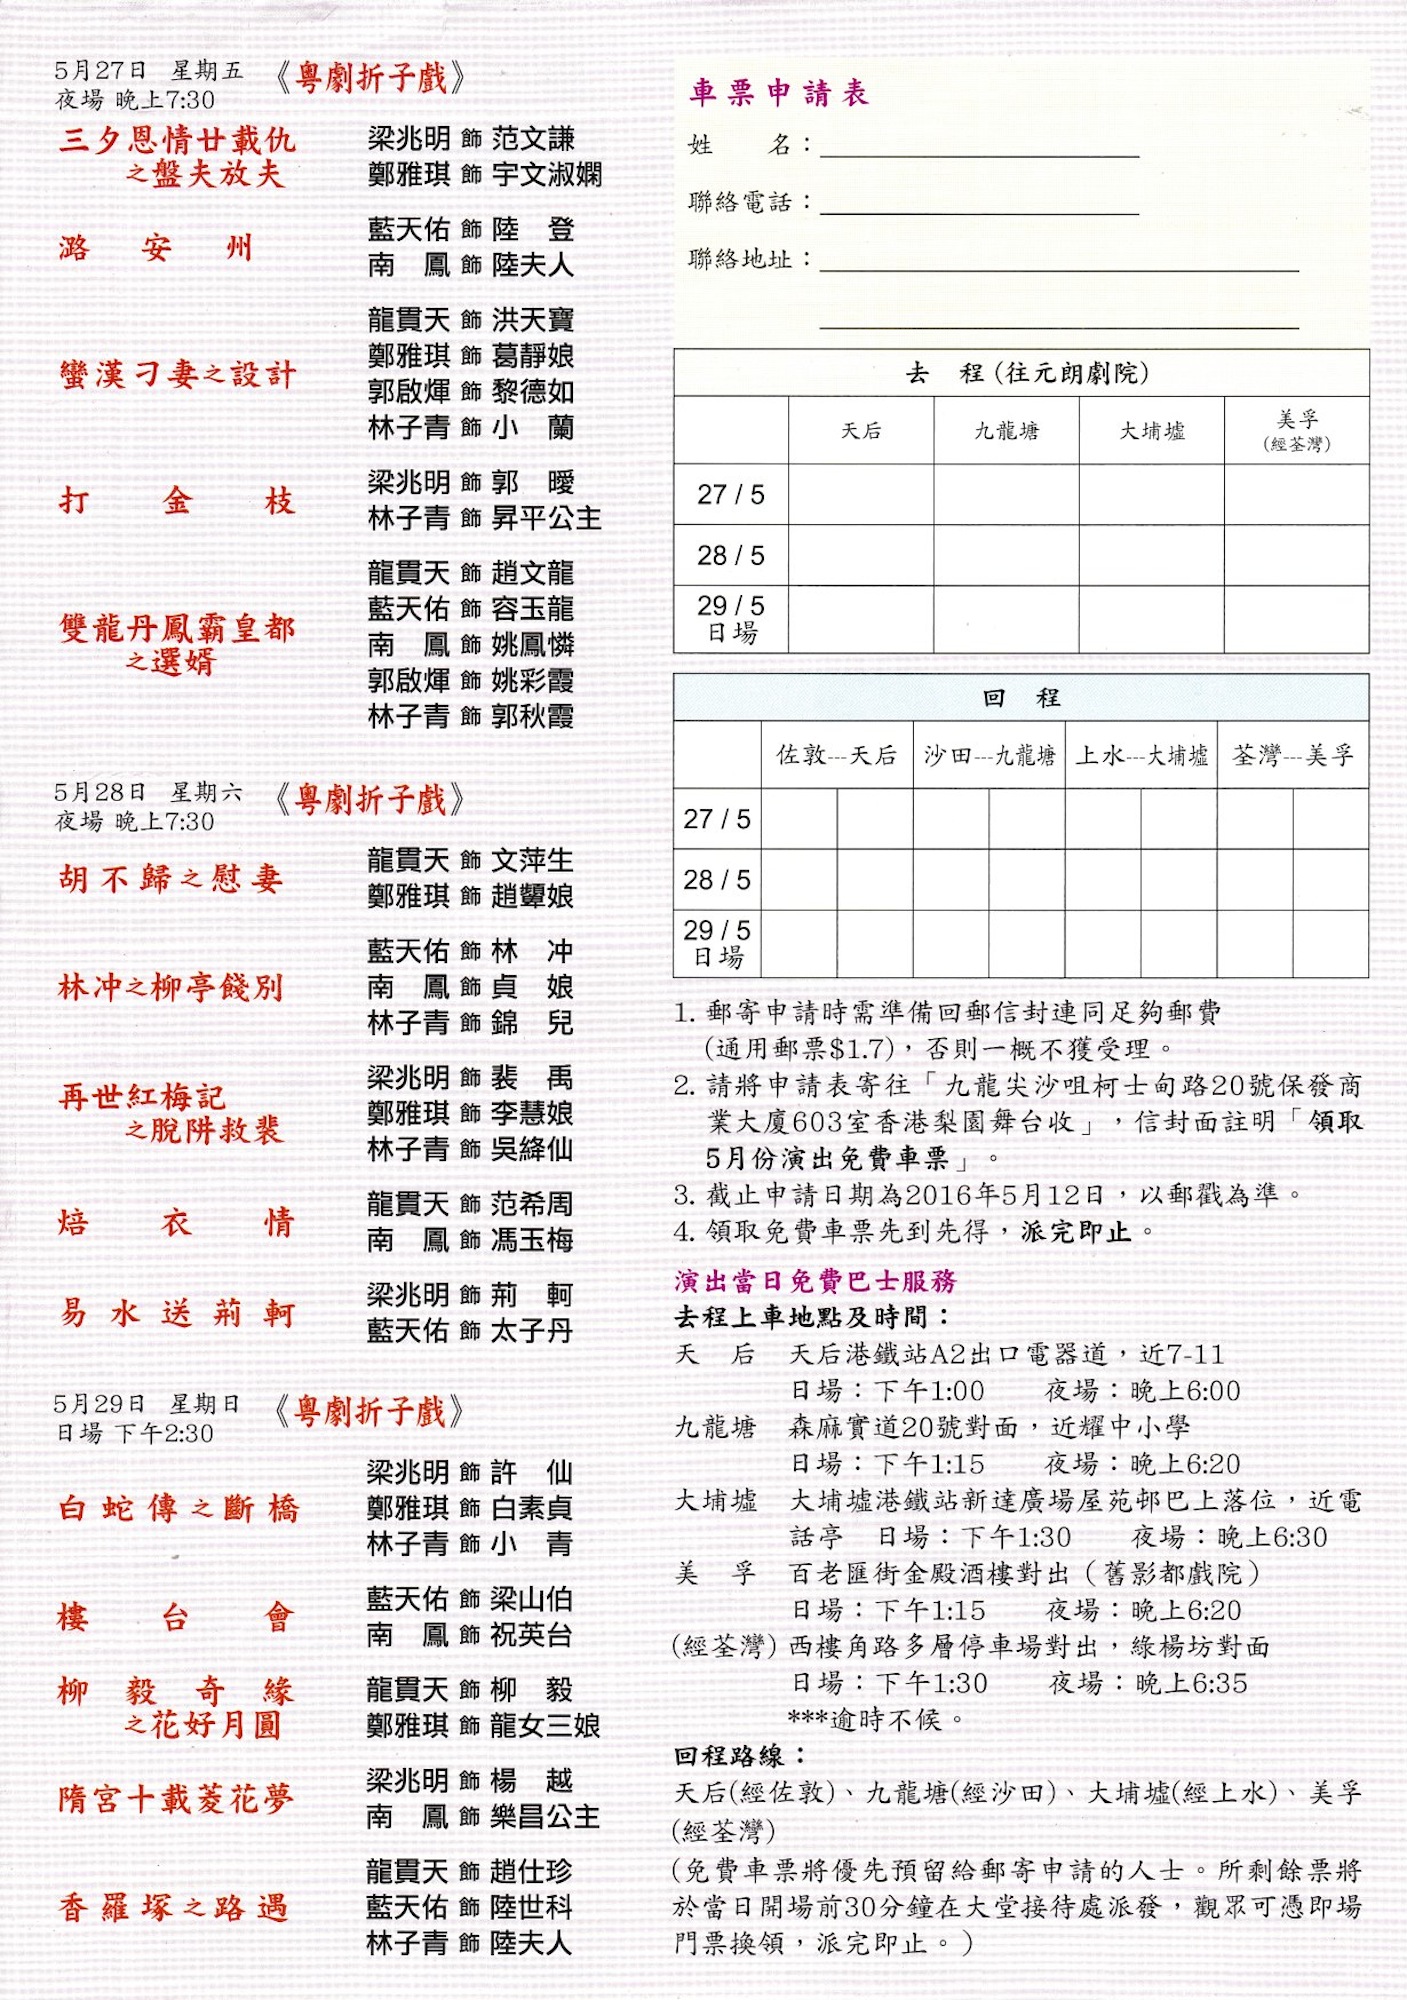 5月27日 星期五 《粵劇折子戲》
夜場 晚上7:30
三夕恩情廿載仇
之盤夫放夫
梁兆明 飾 范文謙
鄭雅琪 飾 宇文淑嫻
潞安州
藍天佑 飾 陸 登
南 鳳 飾 陸夫人
蠻漢刁妻之設計
龍貫天 飾 洪天寶
鄭雅琪 飾 葛靜娘
郭啟煇 飾 黎德如
林子青 飾 小 蘭
打金枝
梁兆明 飾 郭 曖
林子青 飾 昇平公主
雙龍丹鳳霸皇都
之選婿
龍貫天 飾 趙文龍
藍天佑 飾 容玉龍
南 鳳 飾 姚鳳憐
郭啟煇 飾 姚彩霞
林子青 飾 郭秋霞
5月28日 星期六 《粵劇折子戲》
夜場 晚上7:30
胡不歸之慰妻
龍貫天 飾 文萍生
鄭雅琪 飾 趙顰娘
林冲之柳亭餞別
藍天佑 飾 林 冲
南 鳳 飾 貞 娘
林子青 飾 錦 兒
再世紅梅記
之脫阱救裴
梁兆明 飾 裴 禹
鄭雅琪 飾 李慧娘
林子青 飾 吳絳仙
焙衣情
龍貫天 飾 范希周
南 鳳 飾 馮玉梅
易水送荊軻
梁兆明 飾 荊 軻
藍天佑 飾 太子丹
5月29日 星期日 《粵劇折子戲》
日場 下午2:30
白蛇傳之斷橋
梁兆明 飾 許 仙
鄭雅琪 飾 白素貞
林子青 飾 小 青
樓台會
藍天佑 飾 梁山伯
南 鳳 飾 祝英台
柳毅奇緣
之花好月圓
龍貫天 飾 柳 毅
鄭雅琪 飾 龍女三娘
隋宮十載菱花夢
梁兆明 飾 楊 越
南 鳳 飾 樂昌公主
香羅塚之路遇
龍貫天 飾 趙仕珍
藍天佑 飾 陸世科
林子青 飾 陸夫人
車票申請表
姓 名：
聯絡電話：
聯絡地址：
去 程(往元朗劇院)
天后 九龍塘 大埔墟 美孚
(經荃灣)
27 / 5
28 / 5
29 / 5
日場
回 程
佐敦---天后 沙田---九龍塘 上水---大埔墟 荃灣---美孚
27 / 5
28 / 5
29 / 5
日場
1. 郵寄申請時需準備回郵信封連同足夠郵費
(通用郵票$1.7)，否則一概不獲受理。
2. 請將申請表寄往「九龍尖沙咀柯士甸路20號保發商
業大廈603室香港梨園舞台收」，信封面註明「領取
5月份演出免費車票」。
3. 截止申請日期為2016年5月12日，以郵戳為準。
4. 領取免費車票先到先得，派完即止。
演出當日免費巴士服務
去程上車地點及時間：
天 后 天后港鐵站A2出口電器道，近7-11
日場：下午1:00 夜場：晚上6:00
九龍塘 森麻實道20號對面，近耀中小學
日場：下午1:15 夜場：晚上6:20
大埔墟 大埔墟港鐵站新達廣場屋苑邨巴上落位，近電
話亭 日場：下午1:30 夜場：晚上6:30
美 孚 百老匯街金殿酒樓對出（舊影都戲院）
日場：下午1:15 夜場：晚上6:20
(經荃灣) 西樓角路多層停車場對出，綠楊坊對面
日場：下午1:30 夜場：晚上6:35
***逾時不候。
回程路線：
天后(經佐敦)、九龍塘(經沙田)、大埔墟(經上水)、美孚
(經荃灣)
(免費車票將優先預留給郵寄申請的人士。所剩餘票將
於當日開場前30分鐘在大堂接待處派發，觀眾可憑即場
門票換領，派完即止。)